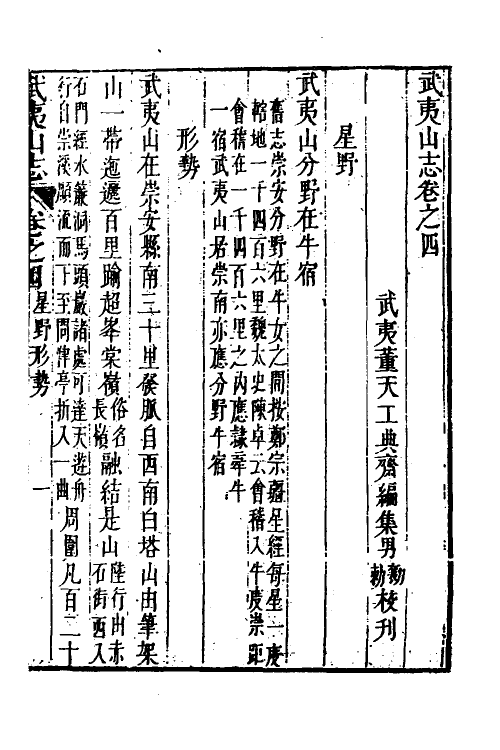 武夷山志卷之四
武夷董天工典齋編集男勷勅校刊
星野
武夷山分野在牛宿
舊志崇安分野在牛女之間按鄭宗疆星經每星一度
轄地一千四百六里魏太史陳卓云會稽入牛度崇距
會稽在一千四百六里之內應隷牽牛
一宿武夷山居崇南亦應分野牛宿
形勢
武夷山在崇安縣南三十里發脈自西南白塔山由筆架
山一帶迤邐百里踰超峯棠嶺俗名長嶺融結是山陸行由赤石街西入
石門經水簾洞馬頭巖諸處可達天遊舟行自崇溪順流而下至問津亭折入一曲周圍凡百二十
武夷山志 卷之四 星野 形勢 一